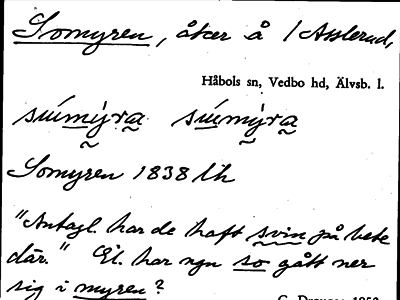 Somyren, åker å 1 Asslerud,
Håbols sn, Vedbo hd, Älvsb. l.
súmỳra súmỳra
Somyren 1838 lh
"Antagl. har de haft svin på bete
där." El. har ngn so gått ner
sig i myren?